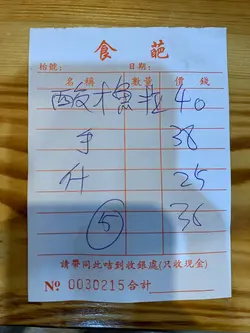 食葩
枱號： 日期：
名稱 數量 價錢
酸 40
手 38
什 25
⑤ 36
請帶同此咭到收銀處(只收現金)
№ 0030215 合計